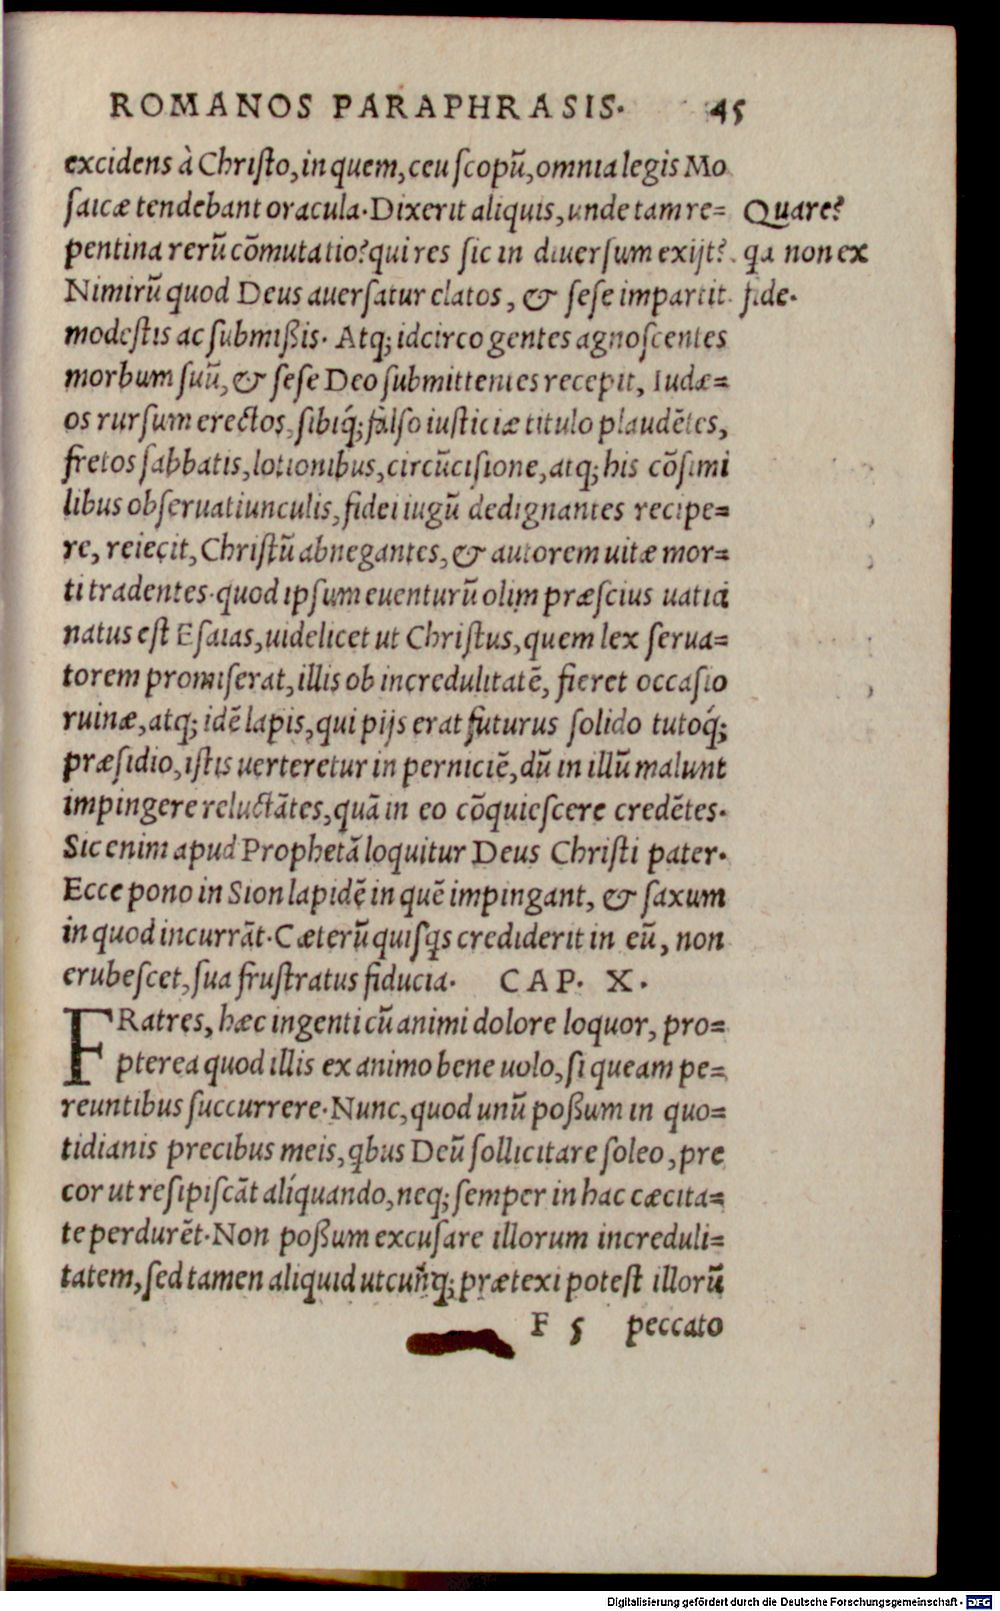 ROMANOS PARAPHRASIS. 45
excidens à Christo, in quem, ceu scopũ, omnia legis Mo
saicæ tendebant oracula. Dixerit aliquis, unde tam re=
pentina rerũ cõmutatio? qui res sic in diuersum exijt?
Nimirũ quod Deus auersatur elatos, & sese impartit
modestis ac submißis. Atq; idcirco gentes agnoscentes
morbum suũ, & sese Deo submittentes recepit, Iudæ=
os rursum erectos, sibiq́; falso iusticiæ titulo plaudẽtes,
fretos sabbatis, lotionibus, circũcisione, atq; his cõsimi
libus obseruatiunculis, fidei iugũ dedignantes recipe=
re, reiecit, Christũ abnegantes, & autorem uitæ mor=
ti tradentes. quod ipsum euenturũ olim præscius uatici
natus est Esaias, uidelicet ut Christus, quem lex serua=
torem promiserat, illis ob incredulitatẽ, fieret occasio
ruinæ, atq; idẽ lapis, qui pijs erat futurus solido tutoq́;
præsidio, istis uerteretur in perniciẽ, dũ in illũ malunt
impingere reluctãtes, quã in eo cõquiescere credẽtes.
Sic enim apud Prophetã loquitur Deus Christi pater.
Ecce pono in Sion lapidẽ in quẽ impingant, & saxum
in quod incurrãt. Cæterũ quisqs crediderit in eũ, non
erubescet, sua frustratus fiducia. CAP. X.
FRatres, hæc ingenti cũ animi dolore loquor, pro=
pterea quod illis ex animo bene uolo, si queam pe=
reuntibus succurrere. Nunc, quod unũ poßum in quo=
tidianis precibus meis, qbus Deũ sollicitare soleo, pre
cor ut resipiscãt alíquando, neq; semper in hac cæcita=
te perdurẽt. Non poßum excusare illorum increduli=
tatem, sed tamen aliquid utcunq̃; prætexi potest illorũ
F 5 peccato
Quare?
qa non ex
fide.
Digitalisierung gefördert durch die Deutsche Forschungsgemeinschaft - DFG